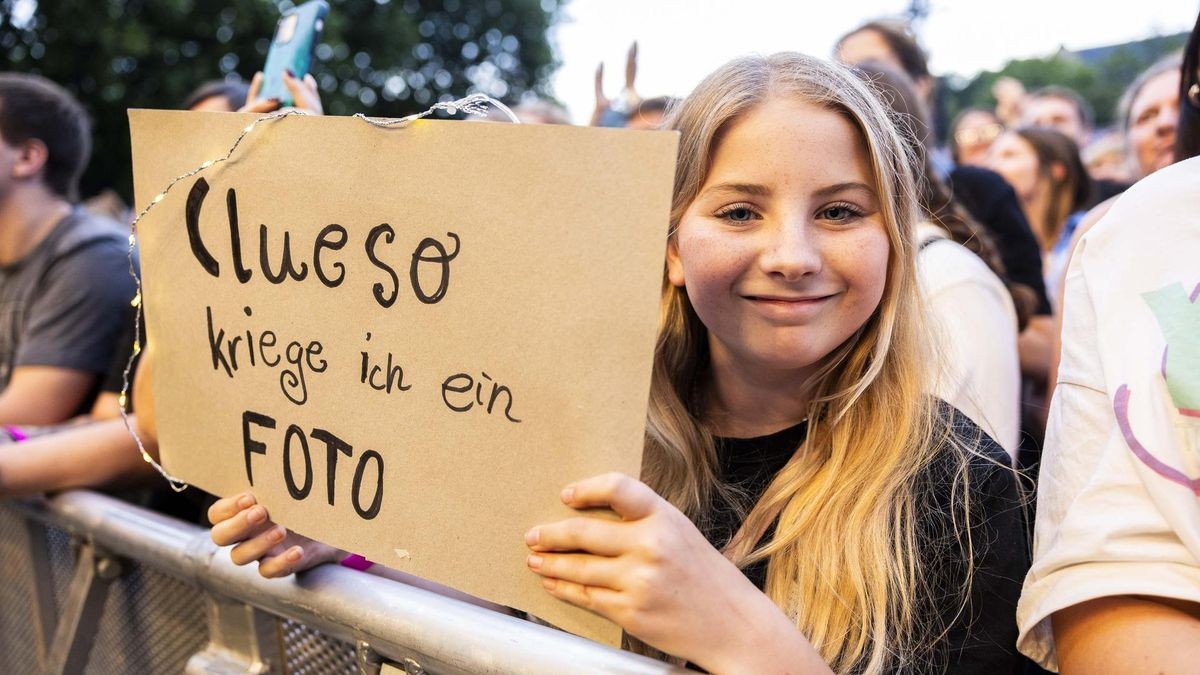 Clueso
kriege ich ein
FOTO